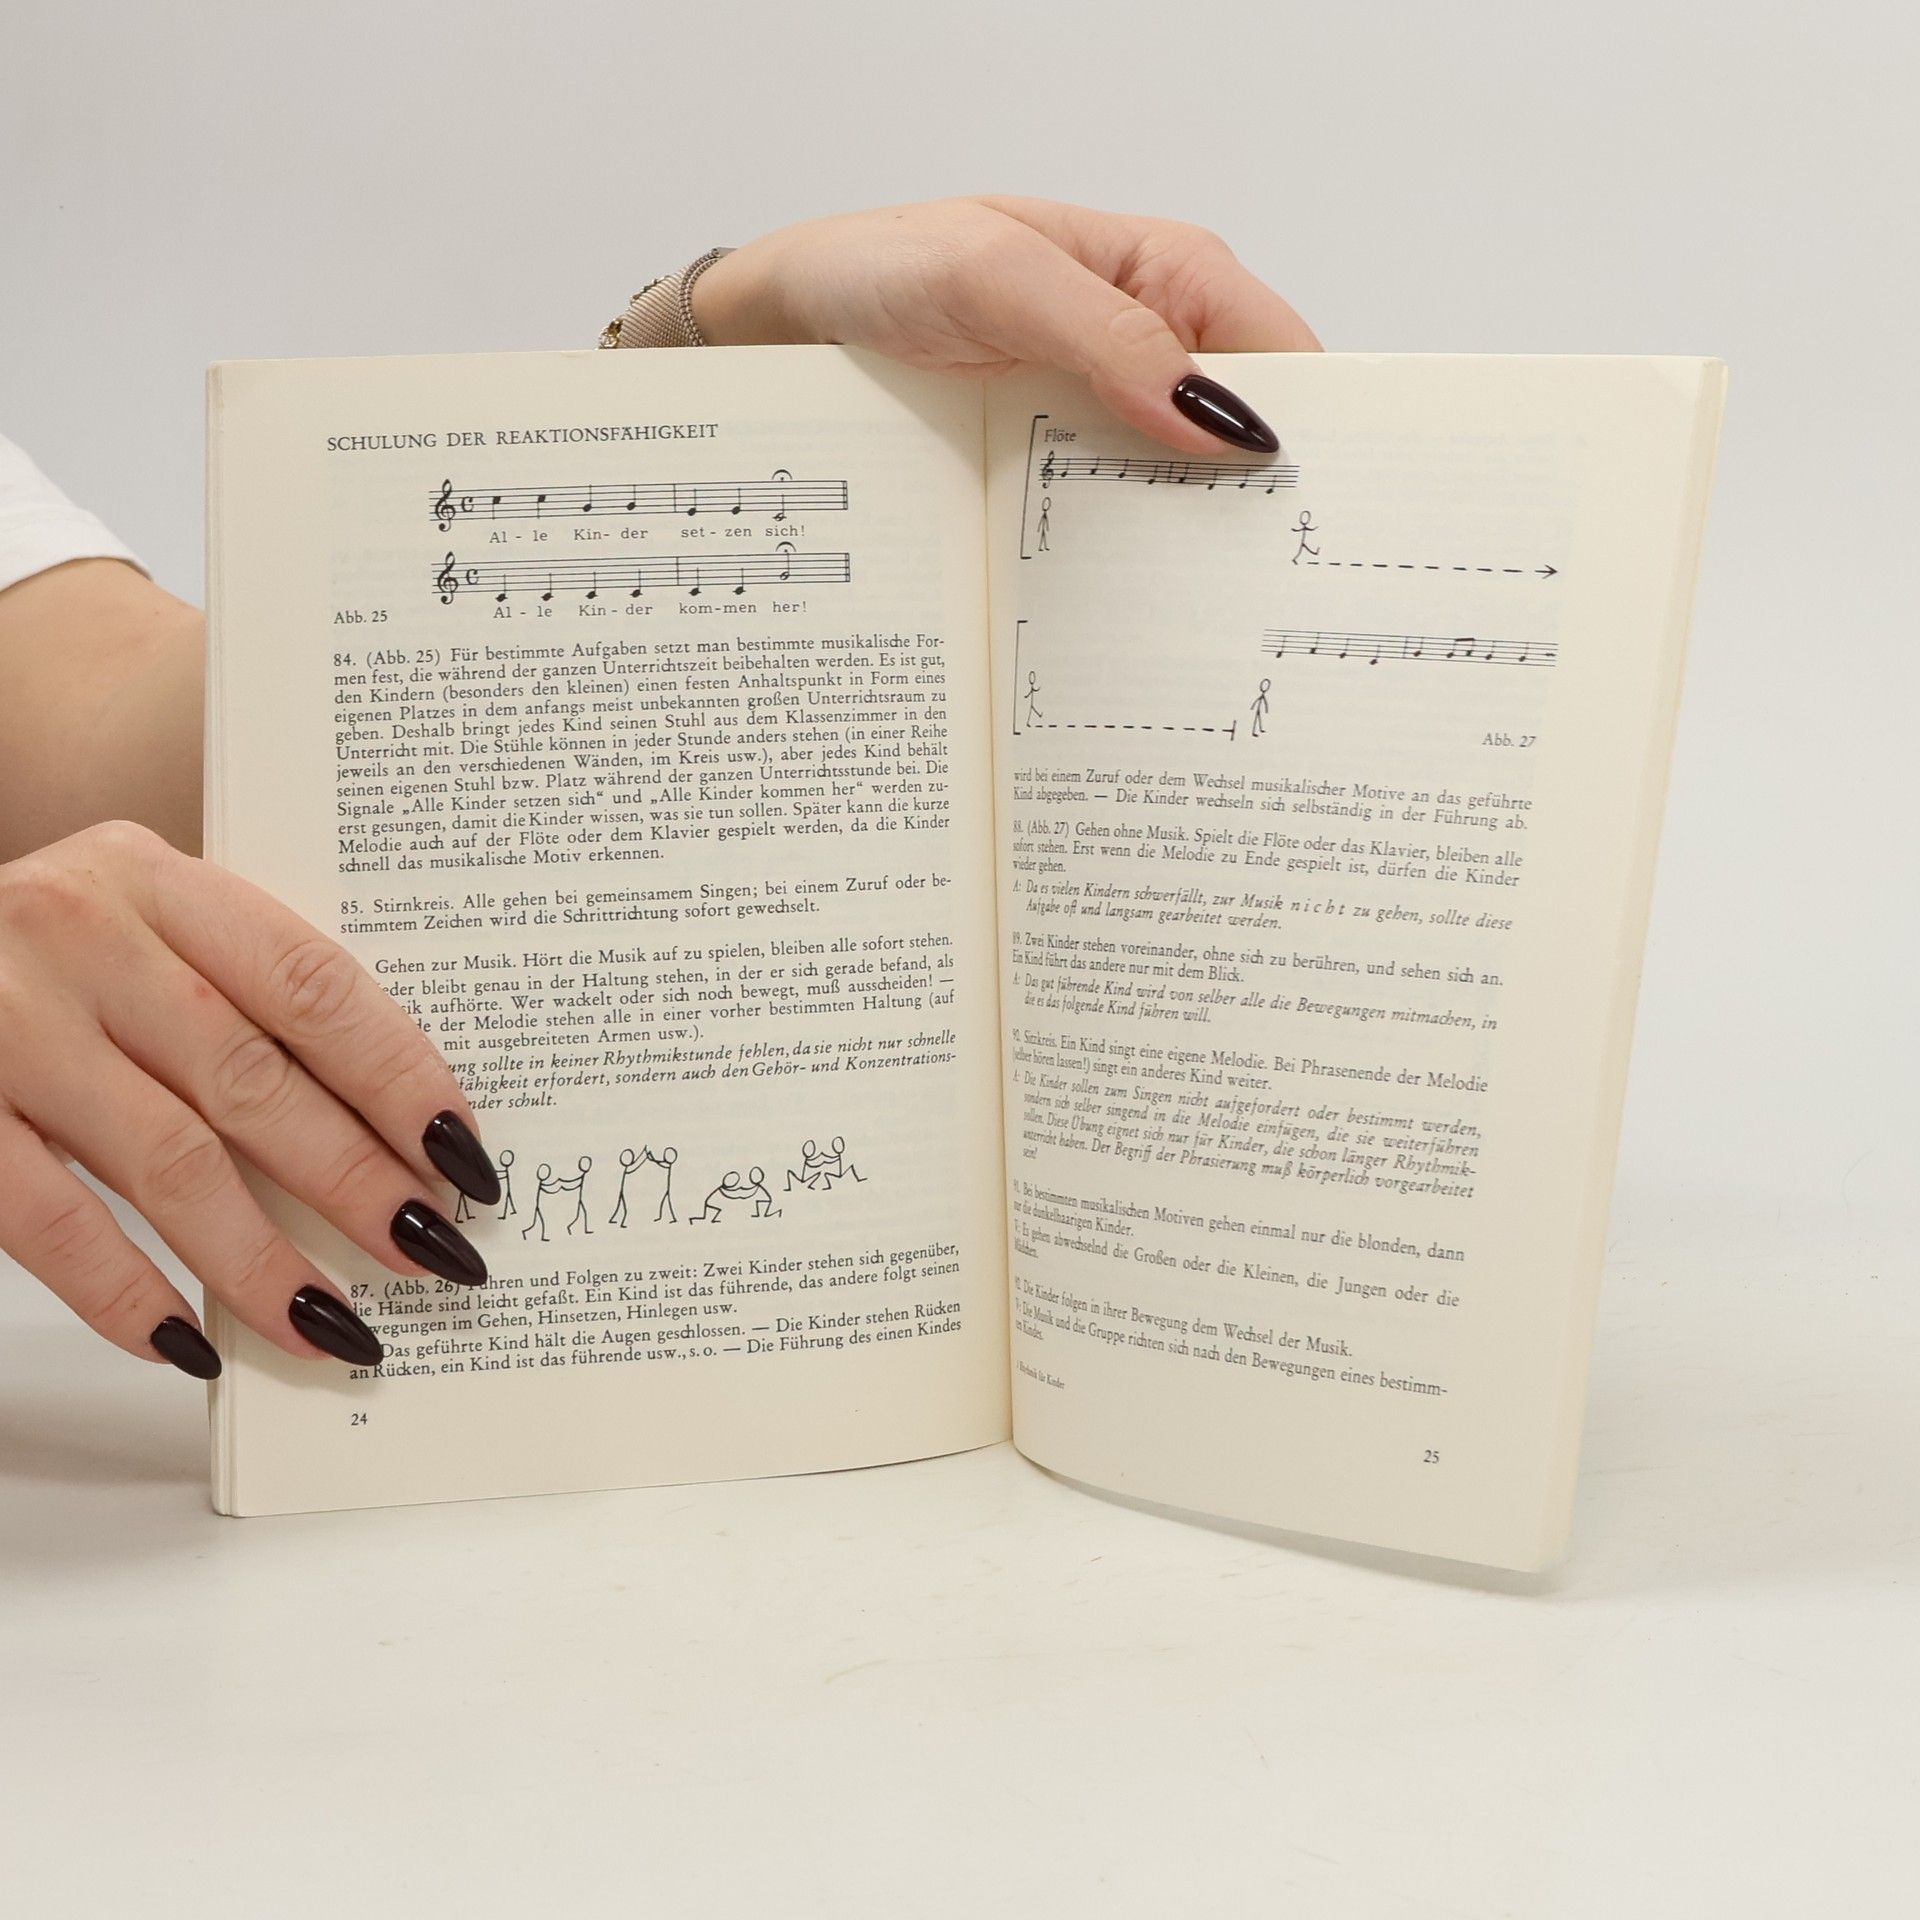 SCHULUNG DER REAKTIONSFÄHIGKEIT
Al - le Kin- der set - zen sich!
Al - le Kin - der kom-men her!
Abb. 25
84. (Abb. 25) Für bestimmte Aufgaben setzt man bestimmte musikalische For-
men fest, die während der ganzen Unterrichtszeit beibehalten werden. Es ist gut,
den Kindern (besonders den kleinen) einen festen Anhaltspunkt in Form eines
eigenen Platzes in dem anfangs meist unbekannten großen Unterrichtsraum zu
geben. Deshalb bringt jedes Kind seinen Stuhl aus dem Klassenzimmer in den
Unterricht mit. Die Stühle können in jeder Stunde anders stehen (in einer Reihe
jeweils an den verschiedenen Wänden, im Kreis usw.), aber jedes Kind behält
seinen eigenen Stuhl bzw. Platz während der ganzen Unterrichtsstunde bei. Die
Signale „Alle Kinder setzen sich“ und „Alle Kinder kommen her“ werden zu-
erst gesungen, damit die Kinder wissen, was sie tun sollen. Später kann die kurze
Melodie auch auf der Flöte oder dem Klavier gespielt werden, da die Kinder
schnell das musikalische Motiv erkennen.
85. Stirnkreis. Alle gehen bei gemeinsamem Singen; bei einem Zuruf oder be-
stimmtem Zeichen wird die Schrittrichtung sofort gewechselt.
Gehen zur Musik. Hört die Musik auf zu spielen, bleiben alle sofort stehen.
eder bleibt genau in der Haltung stehen, in der er sich gerade befand, als
sik aufhörte. Wer wackelt oder sich noch bewegt, muß ausscheiden! —
de der Melodie stehen alle in einer vorher bestimmten Haltung (auf
mit ausgebreiteten Armen usw.).
ung sollte in keiner Rhythmikstunde fehlen, da sie nicht nur schnelle
fähigkeit erfordert, sondern auch den Gehör- und Konzentrations-
nder schult.
87. (Abb. 26) Führen und Folgen zu zweit: Zwei Kinder stehen sich gegenüber,
die Hände sind leicht gefaßt. Ein Kind ist das führende, das andere folgt seinen
wegungen im Gehen, Hinsetzen, Hinlegen usw.
Das geführte Kind hält die Augen geschlossen. — Die Kinder stehen Rücken
an Rücken, ein Kind ist das führende usw., s. o. — Die Führung des einen Kindes
24
Flöte
Abb. 27
wird bei einem Zuruf oder dem Wechsel musikalischer Motive an das geführte
Kind abgegeben. — Die Kinder wechseln sich selbständig in der Führung ab.
88. (Abb. 27) Gehen ohne Musik. Spielt die Flöte oder das Klavier, bleiben alle
sofort stehen. Erst wenn die Melodie zu Ende gespielt ist, dürfen die Kinder
wieder gehen.
A: Da es vielen Kindern schwerfällt, zur Musik n i c h t zu gehen, sollte diese
Aufgabe oft und langsam gearbeitet werden.
89. Zwei Kinder stehen voreinander, ohne sich zu berühren, und sehen sich an.
Ein Kind führt das andere nur mit dem Blick.
A: Das gut führende Kind wird von selber alle die Bewegungen mitmachen, in
die es das folgende Kind führen will.
90. Sitzkreis. Ein Kind singt eine eigene Melodie. Bei Phrasenende der Melodie
(selber hören lassen!) singt ein anderes Kind weiter.
A: Die Kinder sollen zum Singen nicht aufgefordert oder bestimmt werden,
sondern sich selber singend in die Melodie einfügen, die sie weiterführen
sollen. Diese Übung eignet sich nur für Kinder, die schon länger Rhythmik-
unterricht haben. Der Begriff der Phrasierung muß körperlich vorgearbeitet
sein!
91. Bei bestimmten musikalischen Motiven gehen einmal nur die blonden, dann
nur die dunkelhaarigen Kinder.
V: Es gehen abwechselnd die Großen oder die Kleinen, die Jungen oder die
Mädchen.
92. Die Kinder folgen in ihrer Bewegung dem Wechsel der Musik.
V: Die Musik und die Gruppe richten sich nach den Bewegungen eines bestimm-
ten Kindes.
Rhythmik für Kinder
25